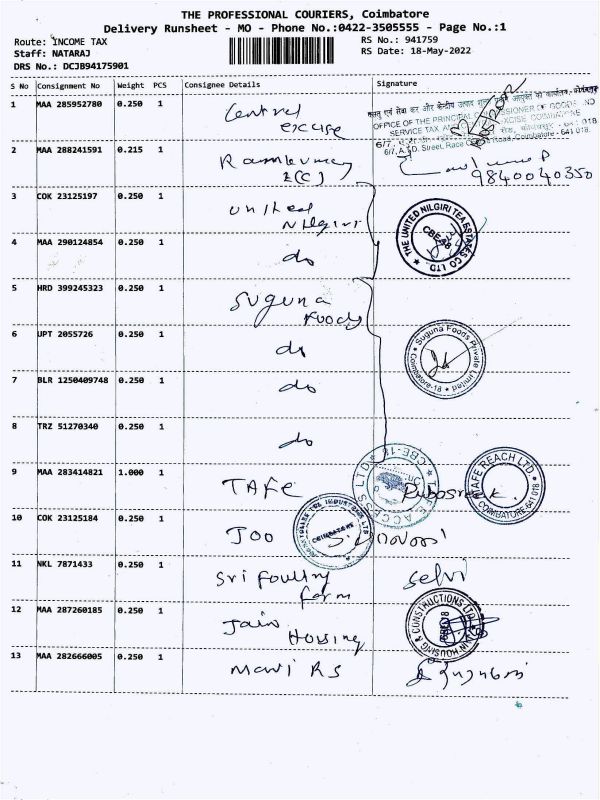 THE PROFESSIONAL COURIERS, Coimbatore
Delivery Runsheet - MO - Phone No.:0422-3505555 - Page No.:1
Route: INCOME TAX
Staff: NATARAJ
DRS No.: DCJB94175901
RS No.: 941759
RS Date: 18-May-2022
S No Consignment No Weight PCS Consignee Details Signature
1 MAA 285952780 0.250 1 Central excise
OFFICE OF THE PRINCIPAL COMMISSIONER OF GOODS AND
SERVICE TAX EXCISE COIMBATORE
6/7, A.T.D. Street, Race Course Road, Coimbatore - 641 018.
2 MAA 288241591 0.215 1
9840040350
3 COK 23125197 0.250 1 United Nilgiri
THE UNITED NILGIRI TEA ESTATES CO LTD. CBE-18
4 MAA 290124854 0.250 1 do
5 HRD 399245323 0.250 1 Suguna Foods
6 UPT 2055726 0.250 1 do
Suguna Foods Private Limited Coimbatore-18
7 BLR 1250409748 0.250 1 do
8 TRZ 51270340 0.250 1 do
9 MAA 283414821 1.000 1 TAFE
TAFE ACCESS LTD CBE-18
TAFE REACH LTD COIMBATORE-641 018
10 COK 23125184 0.250 1 Joo
COIMBATORE
11 NKL 7871433 0.250 1 Sri Poultry farm Selvi
12 MAA 287260185 0.250 1 Jain Housing
JAIN HOUSING & CONSTRUCTIONS LTD
13 MAA 282666005 0.250 1 Mani RS